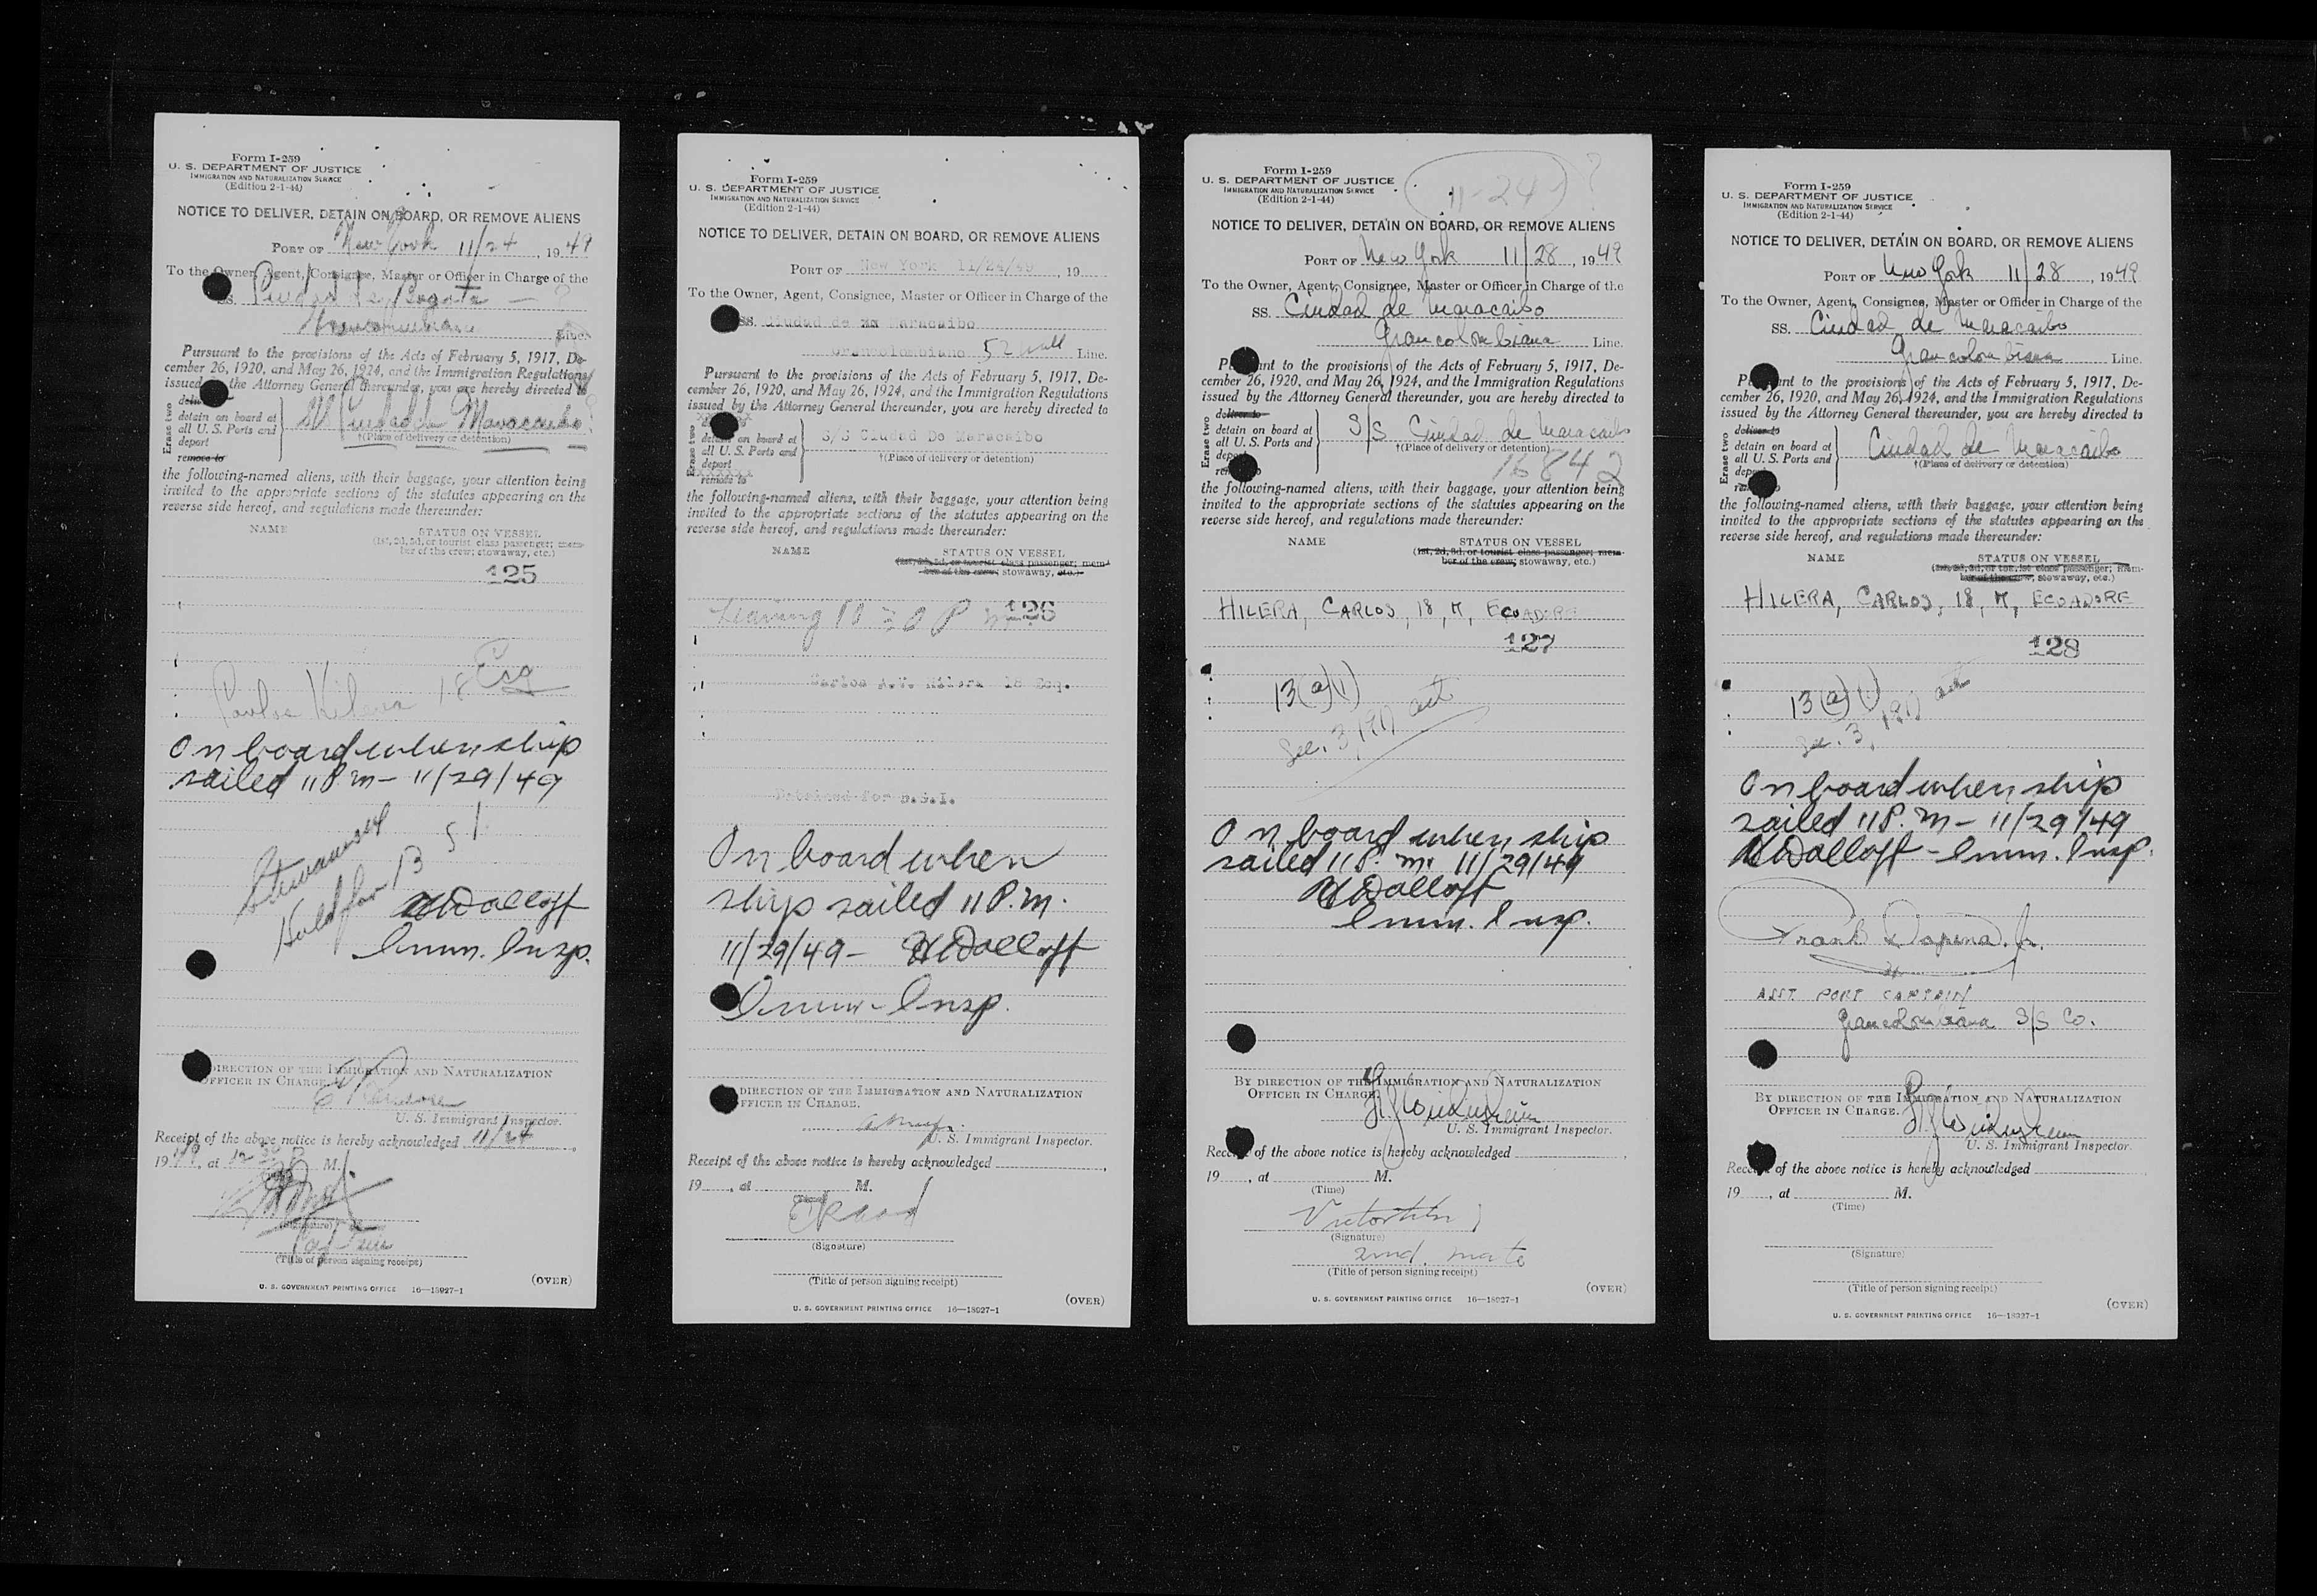 Form I-259
U. S. DEPARTMENT OF JUSTICE
IMMIGRATION AND NATURALIZATION SERVICE
(Edition 2-1-44)
NOTICE TO DELIVER, DETAIN ON BOARD, OR REMOVE ALIENS
PORT OF New York 11/24, 1949
To the Owner, Agent, Consignee, Master or Officer in Charge of the
SS. Ciudad de Bogota — ?
Grancolombiana Line.
Pursuant to the provisions of the Acts of February 5, 1917, De-
cember 26, 1920, and May 26, 1924, and the Immigration Regulations
issued the Attorney General thereunder, you are hereby directed to
Erase two
detain on board at
all U. S. Ports and
deport
remove to
Ciudad de Maracaibo
†(Place of delivery or detention)
the following-named aliens, with their baggage, your attention being
invited to the appropriate sections of the statutes appearing on the
reverse side hereof, and regulations made thereunder:
NAME STATUS ON VESSEL
(1st, 2d, 3d, or tourist class passenger; mem-
ber of the crew; stowaway, etc.)
125
Carlos Hilera 18 Esq
On board when ship
sailed 11 P.m - 11/29/49
Stowaway
Held for B S I
H Dolloff
Imm. Insp.
DIRECTION OF THE IMMIGRATION AND NATURALIZATION
OFFICER IN CHARGE.
U. S. Immigrant Inspector.
Receipt of the above notice is hereby acknowledged 11/24,
1949, at 12 30 P M.
(Signature)
(Title of person signing receipt)
(OVER)
U. S. GOVERNMENT PRINTING OFFICE 16—18927-1
Form I-259
U. S. DEPARTMENT OF JUSTICE
IMMIGRATION AND NATURALIZATION SERVICE
(Edition 2-1-44)
NOTICE TO DELIVER, DETAIN ON BOARD, OR REMOVE ALIENS
PORT OF New York 11/24/49, 19
To the Owner, Agent, Consignee, Master or Officer in Charge of the
SS. Ciudad de xx Maracaibo
Grancolombiano Line.
Pursuant to the provisions of the Acts of February 5, 1917, De-
cember 26, 1920, and May 26, 1924, and the Immigration Regulations
issued by the Attorney General thereunder, you are hereby directed to
Erase two
detain on board at
all U. S. Ports and
deport
remove to
S/S Ciudad De Maracaibo
†(Place of delivery or detention)
the following-named aliens, with their baggage, your attention being
invited to the appropriate sections of the statutes appearing on the
reverse side hereof, and regulations made thereunder:
NAME STATUS ON VESSEL
(1st, 2d, 3d, or tourist class passenger; mem-
ber of the crew; stowaway, etc.)
126
Carlos A.V. Hilera 18 Esq.
Detained for B.S.I.
On board when
ship sailed 11 P.m.
11/29/49 - H Dolloff
Imm. Insp.
DIRECTION OF THE IMMIGRATION AND NATURALIZATION
OFFICER IN CHARGE.
U. S. Immigrant Inspector.
Receipt of the above notice is hereby acknowledged ,
19 , at M.
(Time)
(Signature)
(Title of person signing receipt)
(OVER)
U. S. GOVERNMENT PRINTING OFFICE 16—18927-1
Form I-259
U. S. DEPARTMENT OF JUSTICE
IMMIGRATION AND NATURALIZATION SERVICE
(Edition 2-1-44)
11-24 ?
NOTICE TO DELIVER, DETAIN ON BOARD, OR REMOVE ALIENS
PORT OF New York 11/28, 1949
To the Owner, Agent, Consignee, Master or Officer in Charge of the
SS. Ciudad de Maracaibo
Grancolombiana Line.
Pursuant to the provisions of the Acts of February 5, 1917, De-
cember 26, 1920, and May 26, 1924, and the Immigration Regulations
issued by the Attorney General thereunder, you are hereby directed to
Erase two
deliver to
detain on board at
all U. S. Ports and
deport
S/S Ciudad de Maracaibo
†(Place of delivery or detention)
16842
the following-named aliens, with their baggage, your attention being
invited to the appropriate sections of the statutes appearing on the
reverse side hereof, and regulations made thereunder:
NAME STATUS ON VESSEL
(1st, 2d, 3d, or tourist class passenger; mem-
ber of the crew; stowaway, etc.)
HILERA, CARLOS, 18, M, ECUADORE
127
13(a)(1)
Sec. 3, 1917 act
On board when ship
sailed 11 P. m. 11/29/49
H Dolloff
Imm. Insp.
BY DIRECTION OF THE IMMIGRATION AND NATURALIZATION
OFFICER IN CHARGE.
U. S. Immigrant Inspector.
Receipt of the above notice is hereby acknowledged ,
19 , at M.
(Time)
(Signature)
2nd. mate
(Title of person signing receipt)
(OVER)
U. S. GOVERNMENT PRINTING OFFICE 16—18927-1
Form I-259
U. S. DEPARTMENT OF JUSTICE
IMMIGRATION AND NATURALIZATION SERVICE
(Edition 2-1-44)
NOTICE TO DELIVER, DETAIN ON BOARD, OR REMOVE ALIENS
PORT OF New York 11/28, 1949
To the Owner, Agent, Consignee, Master or Officer in Charge of the
SS. Ciudad de Maracaibo
Grancolombiana Line.
Pursuant to the provisions of the Acts of February 5, 1917, De-
cember 26, 1920, and May 26, 1924, and the Immigration Regulations
issued by the Attorney General thereunder, you are hereby directed to
Erase two
deliver to
detain on board at
all U. S. Ports and
deport
Ciudad de Maracaibo
†(Place of delivery or detention)
the following-named aliens, with their baggage, your attention being
invited to the appropriate sections of the statutes appearing on the
reverse side hereof, and regulations made thereunder:
NAME STATUS ON VESSEL
(1st, 2d, 3d, or tourist class passenger; mem-
ber of the crew; stowaway, etc.)
HILERA, CARLOS, 18, M, ECUADORE
128
13(a)(1)
Sec. 3, 1917 act
On board when ship
sailed 11 P. m - 11/29/49
H Dolloff - Imm. Insp.
Frank Dapena, Jr.
ASST. PORT CAPTAIN
Grancolombiana S/S Co.
BY DIRECTION OF THE IMMIGRATION AND NATURALIZATION
OFFICER IN CHARGE.
U. S. Immigrant Inspector.
Receipt of the above notice is hereby acknowledged
19 , at M.
(Time)
(Signature)
(Title of person signing receipt)
(OVER)
U. S. GOVERNMENT PRINTING OFFICE 16—18927-1